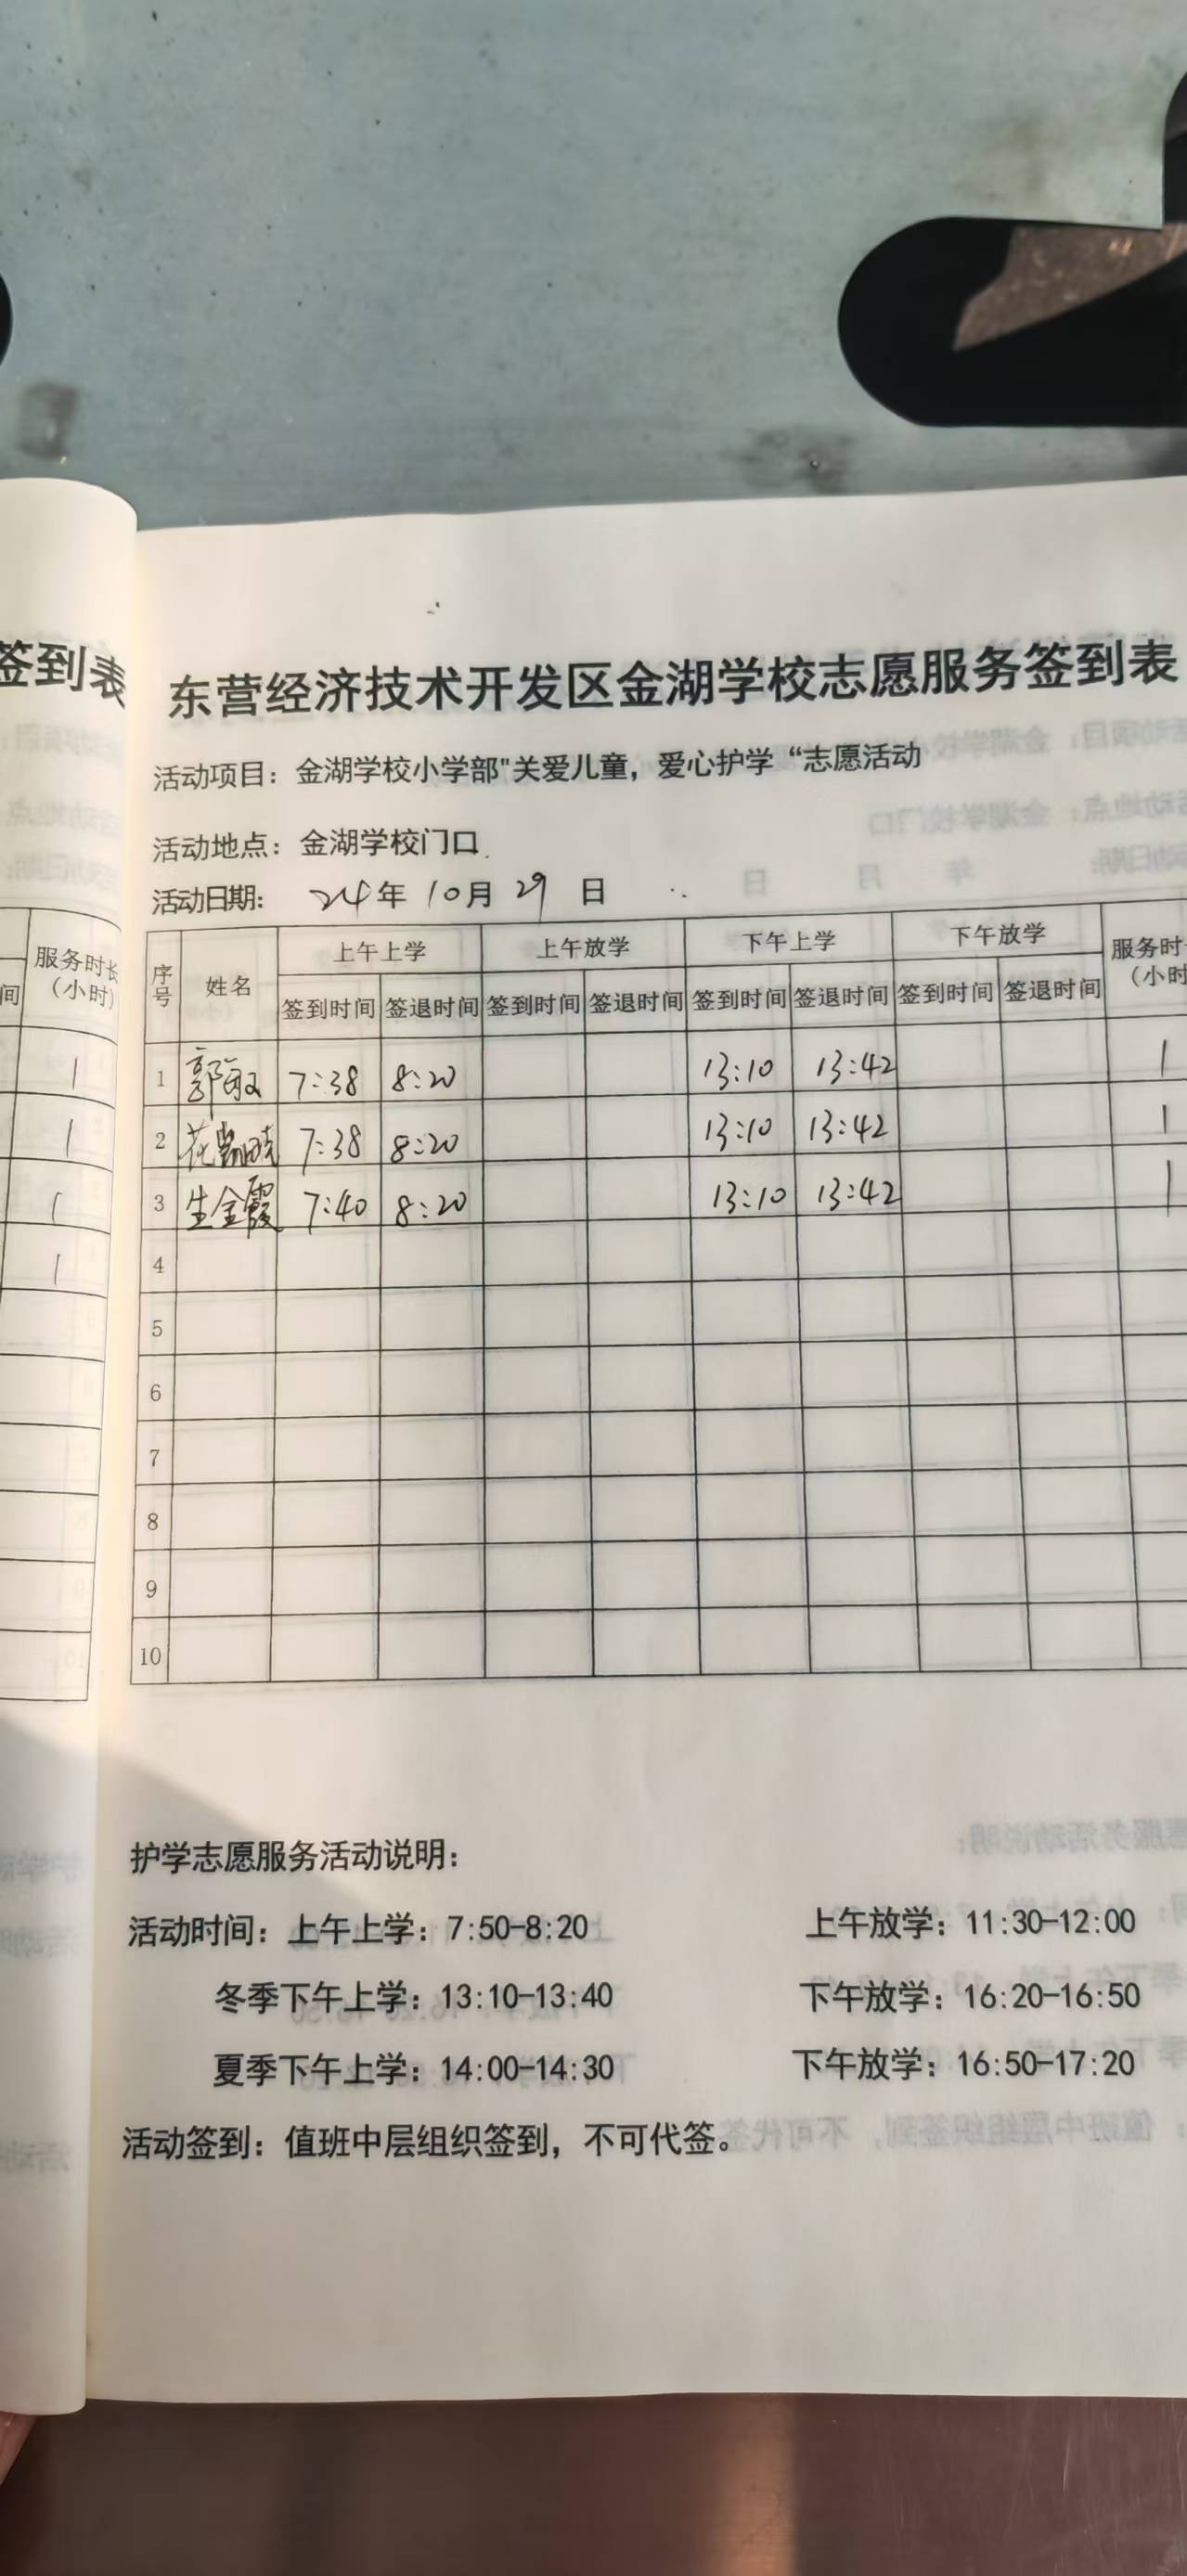 签到表
服务时长
（小时）
间
1
1
1
1
东营经济技术开发区金湖学校志愿服务签到表
活动项目：金湖学校小学部"关爱儿童，爱心护学“志愿活动
活动地点：金湖学校门口
活动日期： 24年 10月 29 日
序号 姓名 上午上学 上午放学 下午上学 下午放学 服务时
（小时
签到时间 签退时间 签到时间 签退时间 签到时间 签退时间 签到时间 签退时间
1 郭敏 7:38 8:20 13:10 13:42 1
2 花 7:38 8:20 13:10 13:42 1
3 生金霞 7:40 8:20 13:10 13:42 1
4
5
6
7
8
9
10
护学志愿服务活动说明：
活动时间：上午上学：7:50-8:20 上午放学：11:30-12:00
冬季下午上学：13:10-13:40 下午放学：16:20-16:50
夏季下午上学：14:00-14:30 下午放学：16:50-17:20
活动签到：值班中层组织签到，不可代签。